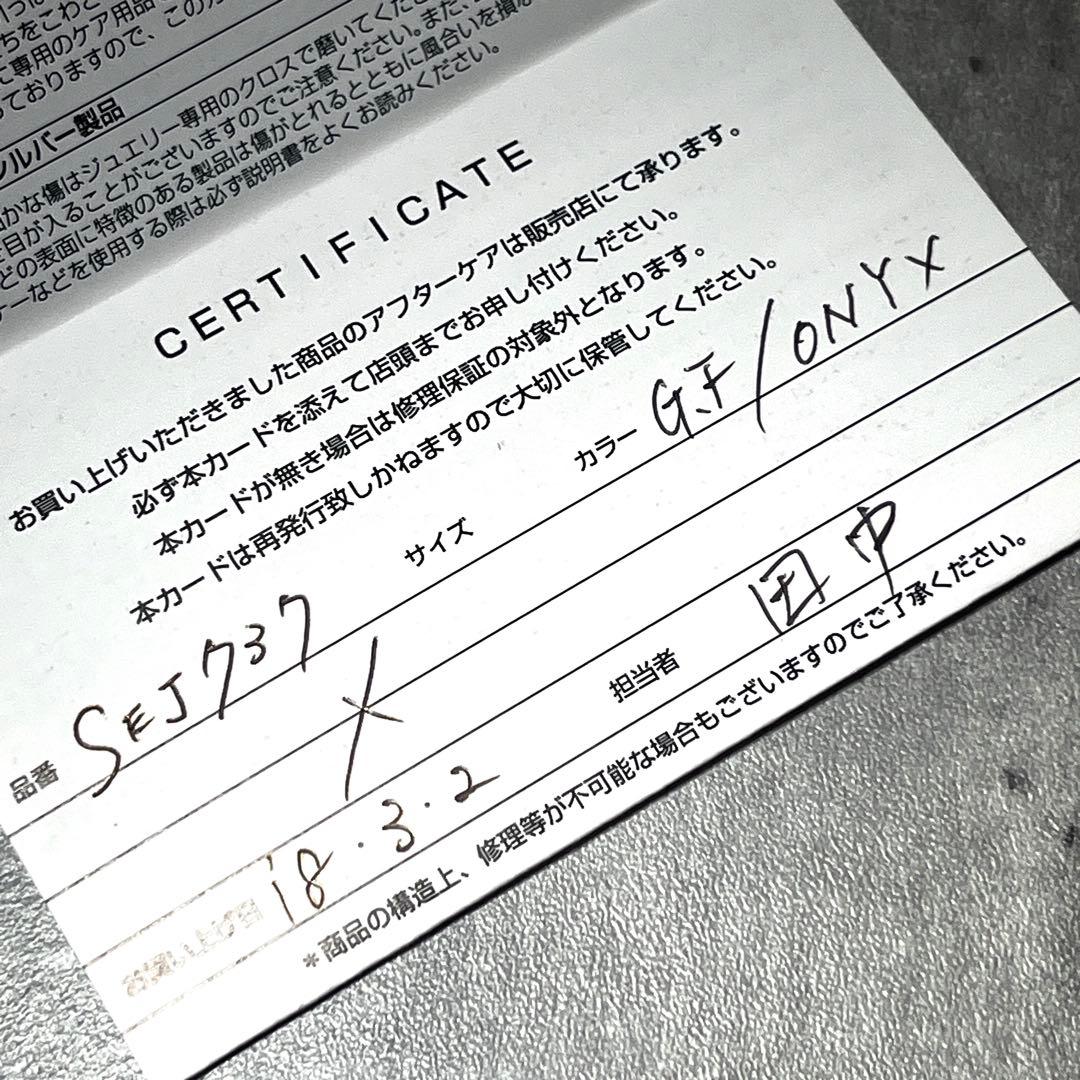 ちをこわと
専用のケア用品
ておりますので、この
シルバー製品
かな傷はジュエリー専用のクロスで磨いてくだ
目が入ることがございますのでご注意ください。また、
どの表面に特徴のある製品は傷がとれるとともに風合いを損
ナーなどを使用する際は必ず説明書をよくお読みください。
CERTIFICATE
お買い上げいただきました商品のアフターケアは販売店にて承ります。
必ず本カードを添えて店頭までお申し付けください。
本カードが無き場合は修理保証の対象外となります。
本カードは再発行致しかねますので大切に保管してください。
品番 SEJ737 サイズ カラー G.F/ONYX
お買い上げ日 '18.3.2 担当者 田中
*商品の構造上、修理等が不可能な場合もございますのでご了承ください。